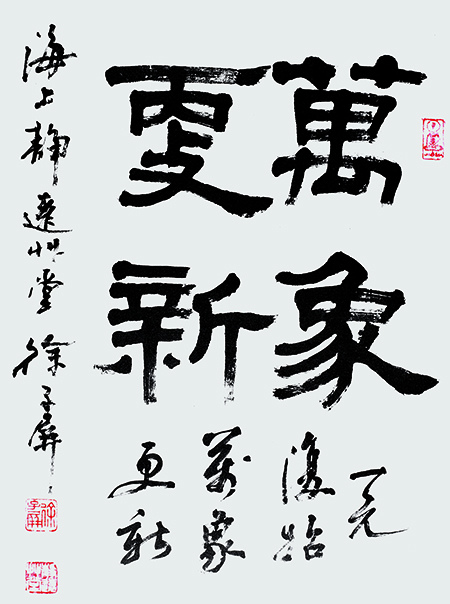 萬象
更新
一元
復始
萬象
更新
海上静遠艸堂徐子屏